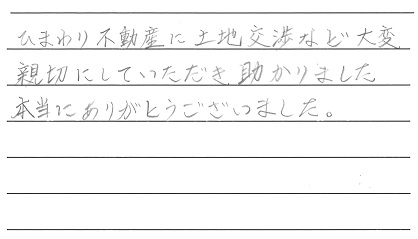 ひまわり不動産に土地交渉など大変
親切にしていただき助かりました
本当にありがとうございました。